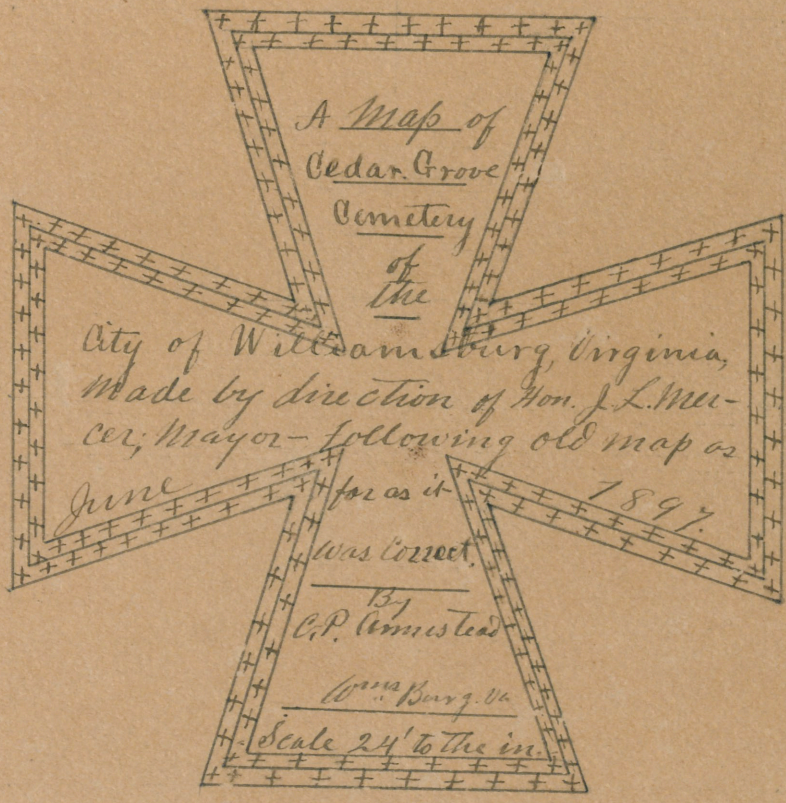 A Map of
Cedar Grove
Cemetery
of
the
City of Williamsburg, Virginia,
Made by direction of Hon. J. L. Mer-
cer, Mayor – following old map as
far as it
June 1897.
was Correct.
By
C. P. Armistead
Wms Burg. Va
Scale 24' to the in.